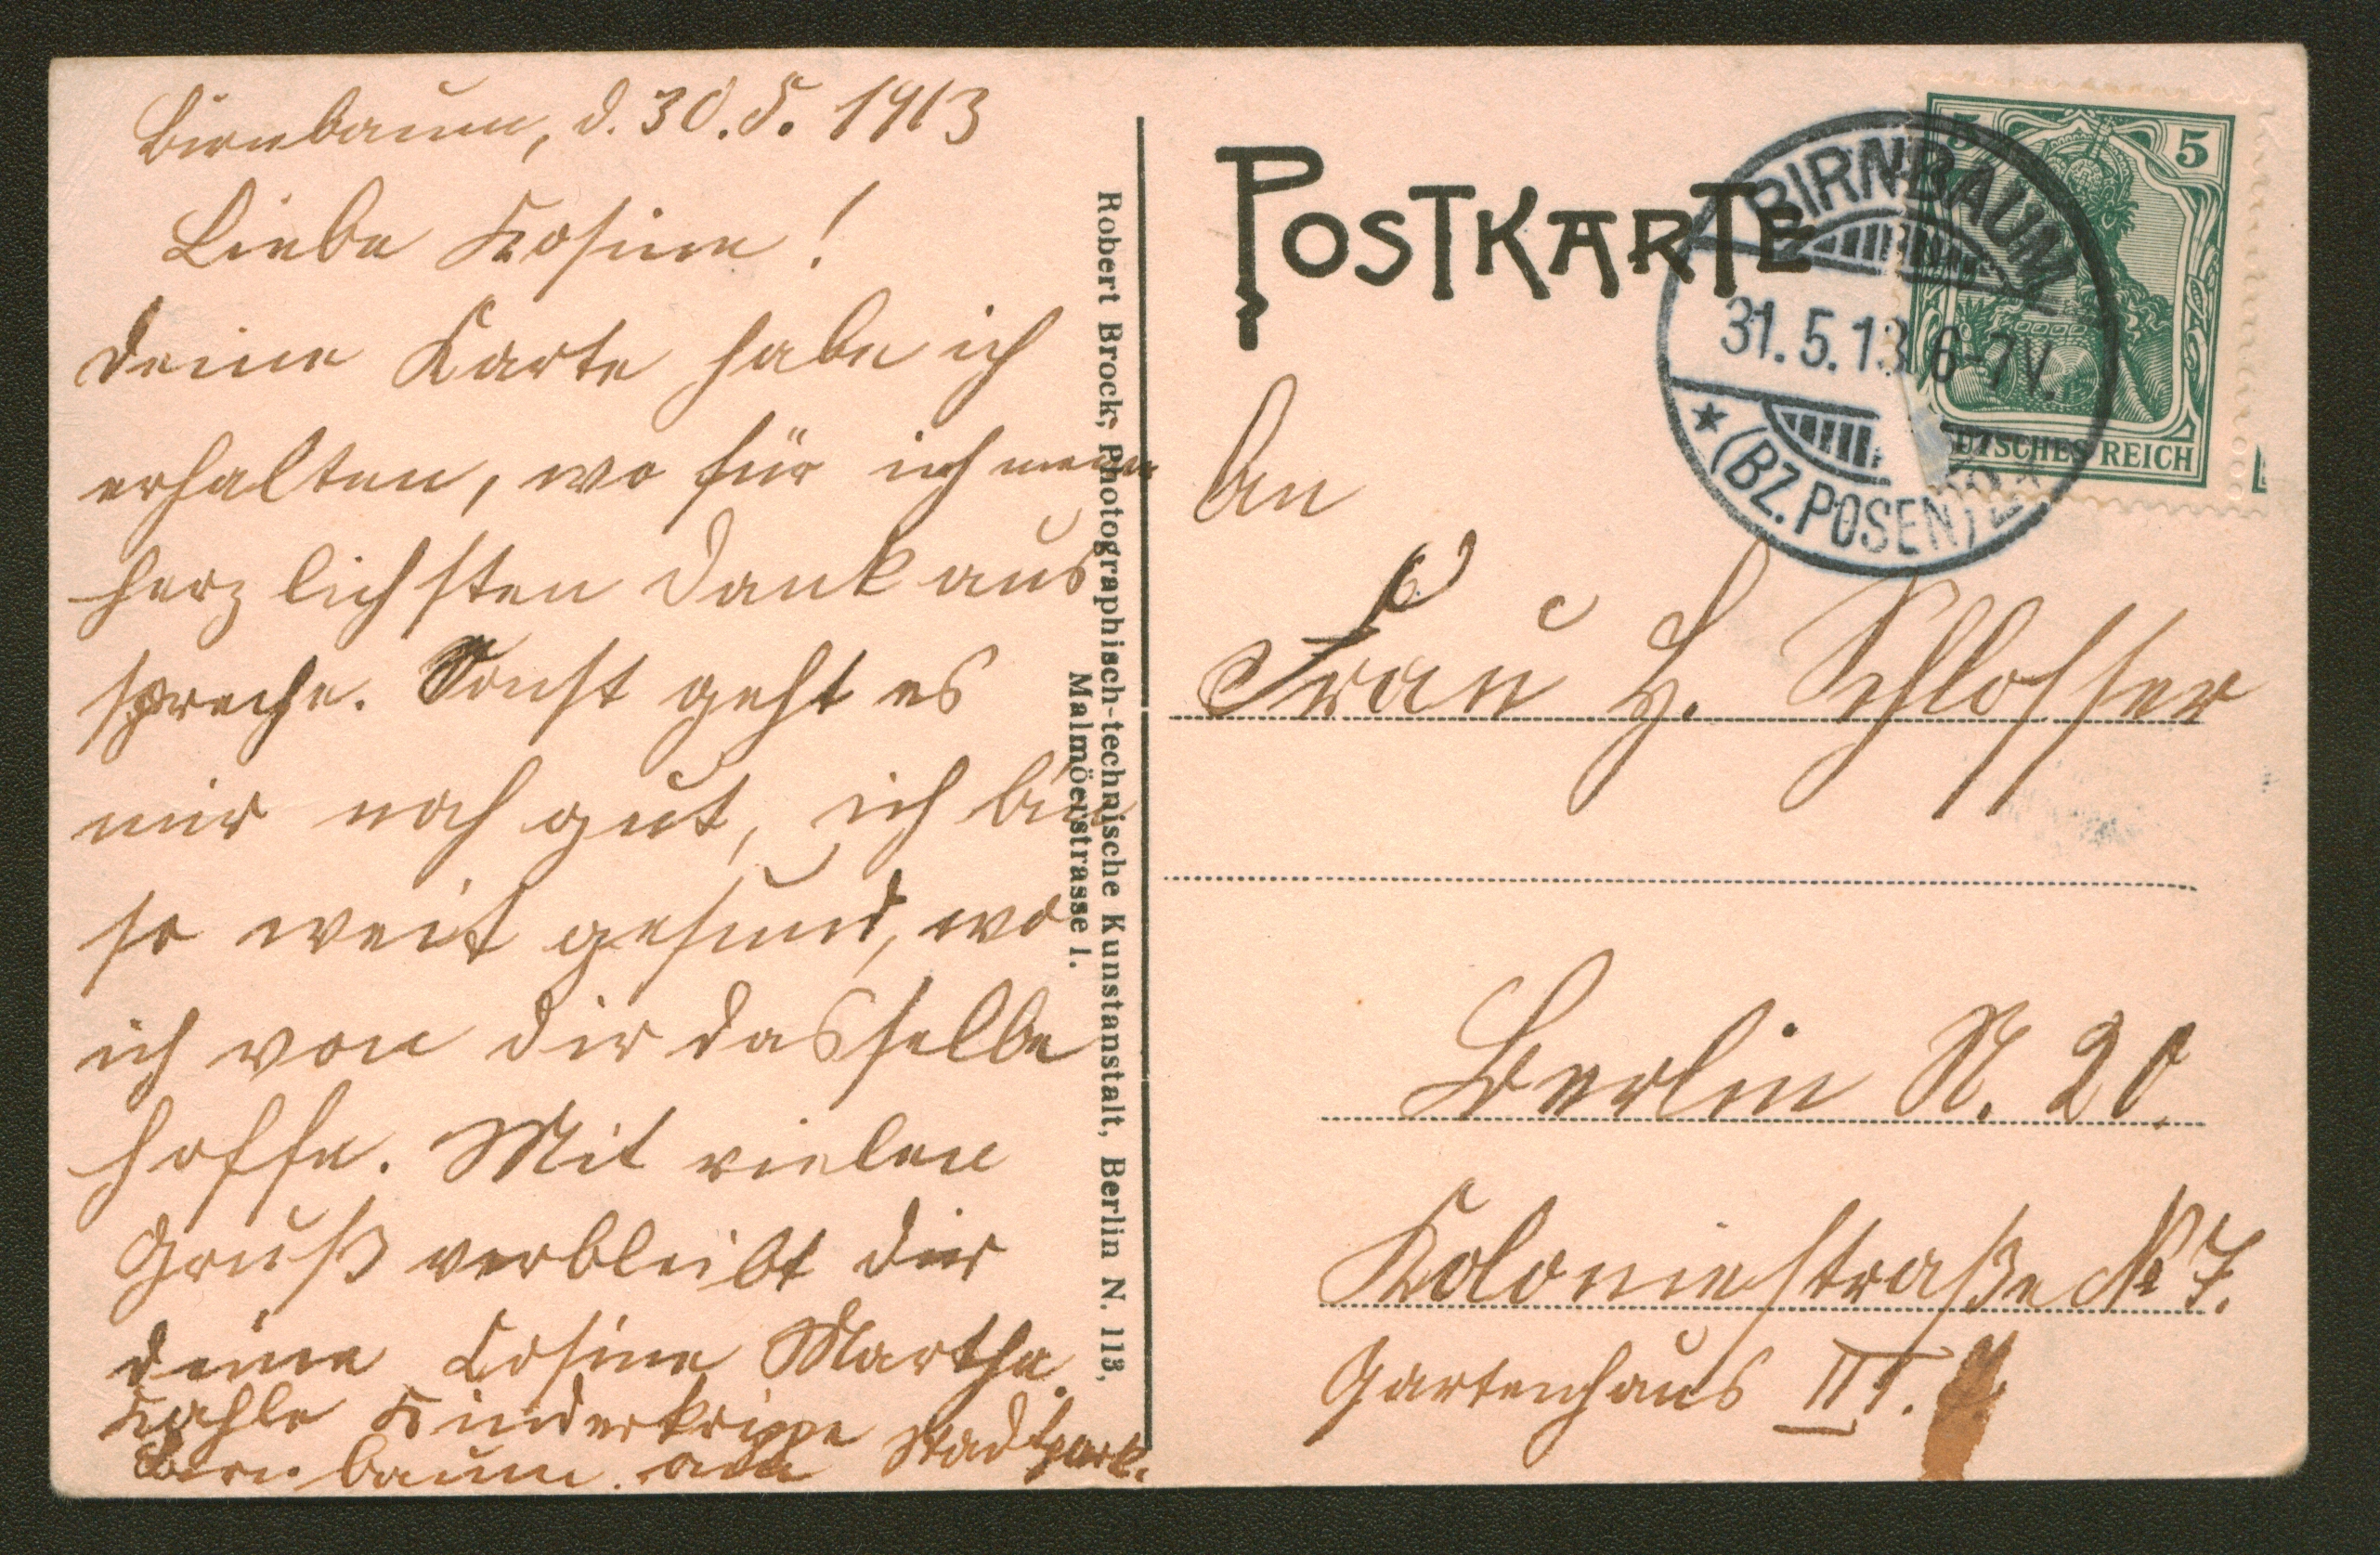 Birnbaum, d. 30. 5. 1913
Liebe Kosine!
deine Karte habe ich
erhalten, wo für ich mein
herzlichsten Dank aus
spreche. Sonst geht es
mir noch gut, ich bin
so weit gesund, wo
ich von dir dasselbe
hoffe. Mit vielen
Gruß verbleibt dir
deine Cosine Martha.
Kahle Kinderkrippe Stadtpark.
Birnbaum
Robert Brock, Photographisch-technische Kunstanstalt, Berlin N. 113,
Malmöerstrasse 1.
POSTKARTE
BIRNBAUM
31.5.13. 6-7V.
(BZ. POSEN)
5 5
DEUTSCHES REICH
An
Frau H. Schlosser
Berlin N. 20.
Koloniestraße № 7.
Gartenhaus III.